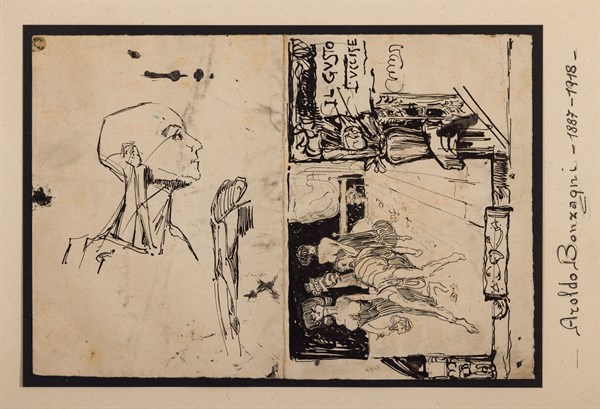 IL GVSTO
L'VCCISE
Aroldo Bonzagni - 1887 - 1918 -